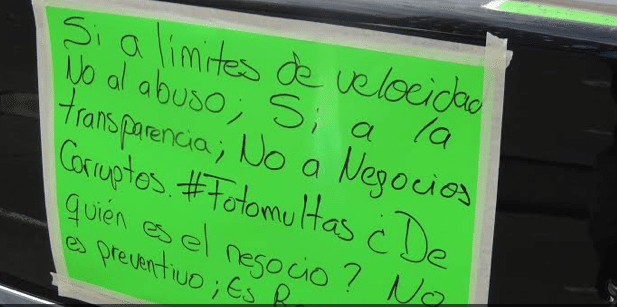 Si a límites de velocidad
No al abuso; Si a la
transparencia; No a Negocios
Corruptos. #Fotomultas ¿De
quién es el negocio? No
es preventivo; Es